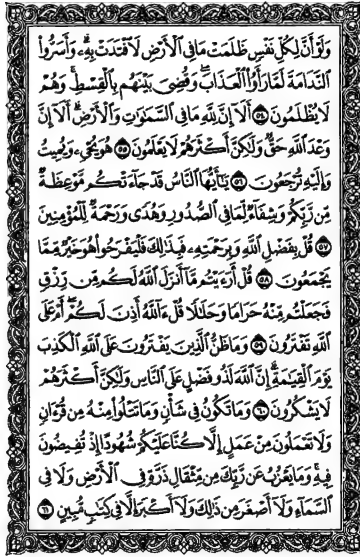 وَلَوۡ أَنَّ لِكُلِّ نَفۡسٖ ظَلَمَتۡ مَا فِي ٱلۡأَرۡضِ لَٱفۡتَدَتۡ بِهِۦۗ وَأَسَرُّواْ
ٱلنَّدَامَةَ لَمَّا رَأَوُاْ ٱلۡعَذَابَۖ وَقُضِيَ بَيۡنَهُم بِٱلۡقِسۡطِ وَهُمۡ
لَا يُظۡلَمُونَ ٥٤ أَلَآ إِنَّ لِلَّهِ مَا فِي ٱلسَّمَٰوَٰتِ وَٱلۡأَرۡضِۗ أَلَآ إِنَّ
وَعۡدَ ٱللَّهِ حَقّٞ وَلَٰكِنَّ أَكۡثَرَهُمۡ لَا يَعۡلَمُونَ ٥٥ هُوَ يُحۡيِۦ وَيُمِيتُ
وَإِلَيۡهِ تُرۡجَعُونَ ٥٦ يَٰٓأَيُّهَا ٱلنَّاسُ قَدۡ جَآءَتۡكُم مَّوۡعِظَةٞ
مِّن رَّبِّكُمۡ وَشِفَآءٞ لِّمَا فِي ٱلصُّدُورِ وَهُدٗى وَرَحۡمَةٞ لِّلۡمُؤۡمِنِينَ
٥٧ قُلۡ بِفَضۡلِ ٱللَّهِ وَبِرَحۡمَتِهِۦ فَبِذَٰلِكَ فَلۡيَفۡرَحُواْ هُوَ خَيۡرٞ مِّمَّا
يَجۡمَعُونَ ٥٨ قُلۡ أَرَءَيۡتُم مَّآ أَنزَلَ ٱللَّهُ لَكُم مِّن رِّزۡقٖ
فَجَعَلۡتُم مِّنۡهُ حَرَامٗا وَحَلَٰلٗا قُلۡ ءَآللَّهُ أَذِنَ لَكُمۡۖ أَمۡ عَلَى
ٱللَّهِ تَفۡتَرُونَ ٥٩ وَمَا ظَنُّ ٱلَّذِينَ يَفۡتَرُونَ عَلَى ٱللَّهِ ٱلۡكَذِبَ
يَوۡمَ ٱلۡقِيَٰمَةِۗ إِنَّ ٱللَّهَ لَذُو فَضۡلٍ عَلَى ٱلنَّاسِ وَلَٰكِنَّ أَكۡثَرَهُمۡ
لَا يَشۡكُرُونَ ٦٠ وَمَا تَكُونُ فِي شَأۡنٖ وَمَا تَتۡلُواْ مِنۡهُ مِن قُرۡءَانٖ
وَلَا تَعۡمَلُونَ مِنۡ عَمَلٍ إِلَّا كُنَّا عَلَيۡكُمۡ شُهُودًا إِذۡ تُفِيضُونَ
فِيهِۚ وَمَا يَعۡزُبُ عَن رَّبِّكَ مِن مِّثۡقَالِ ذَرَّةٖ فِي ٱلۡأَرۡضِ وَلَا فِي
ٱلسَّمَآءِ وَلَآ أَصۡغَرَ مِن ذَٰلِكَ وَلَآ أَكۡبَرَ إِلَّا فِي كِتَٰبٖ مُّبِينٍ ٦١